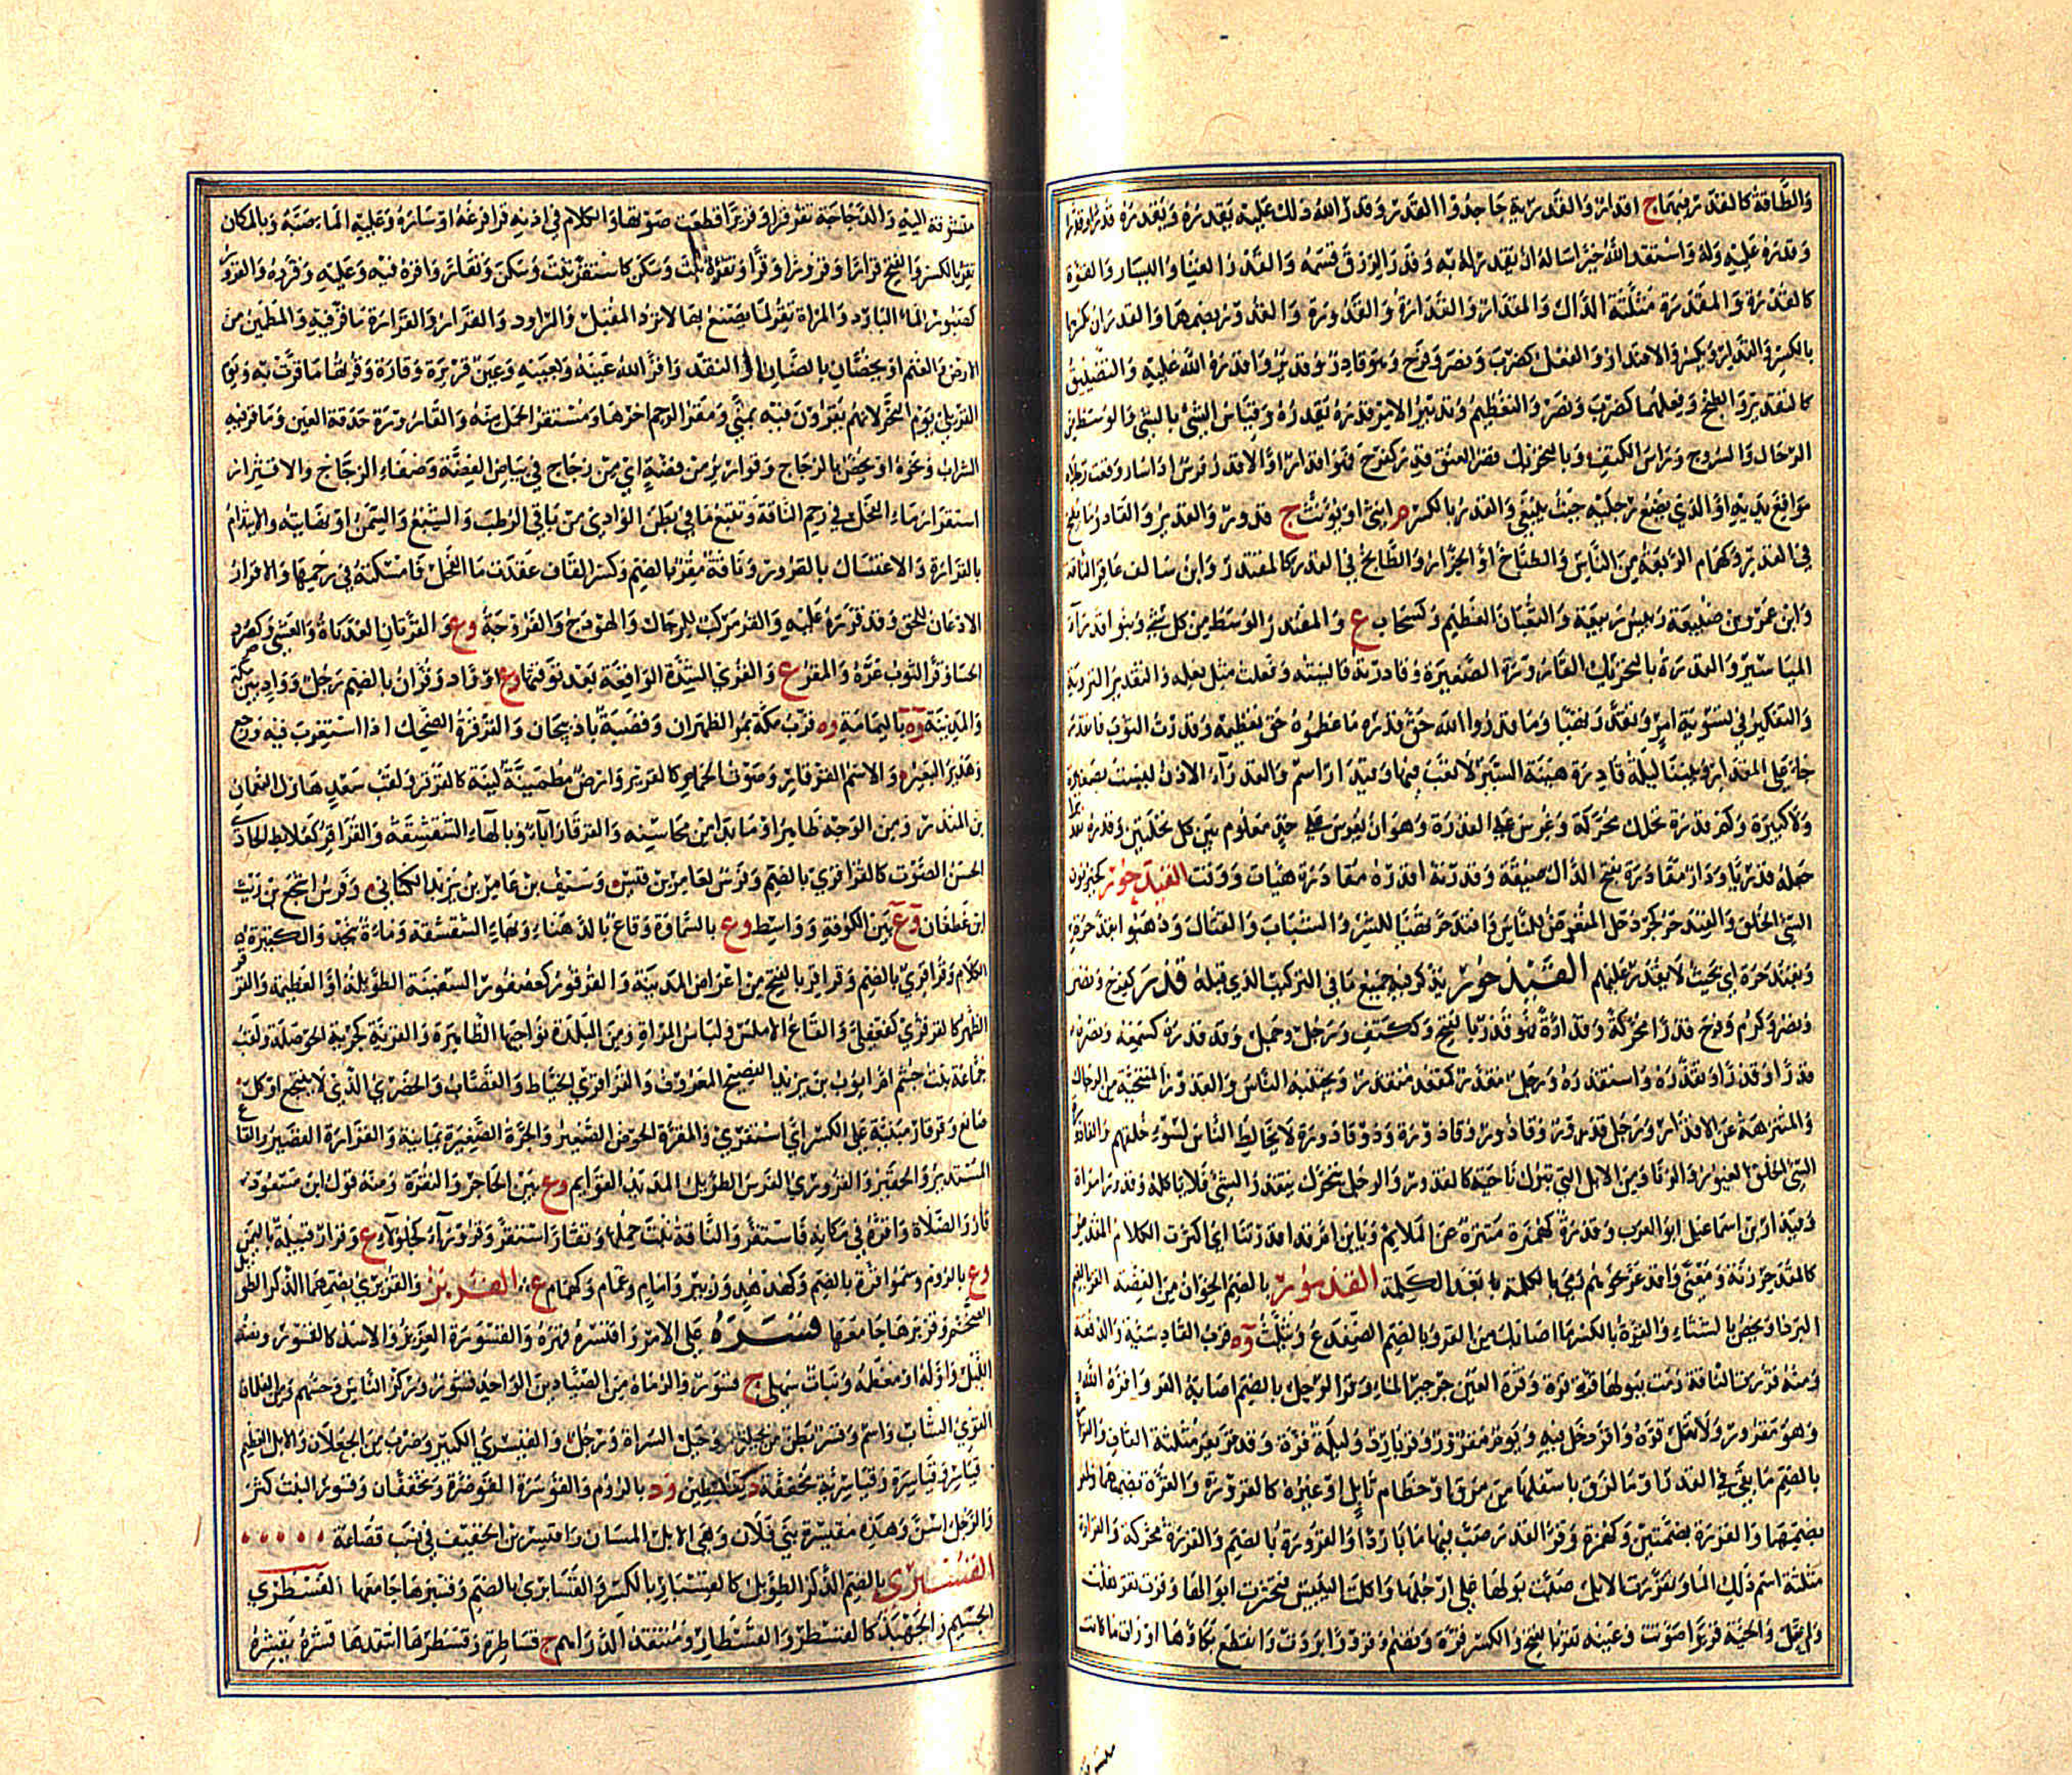 وَالطَّاقَةُ كالقَدَرِ فيهِمَا ج اقدار وَالقَدَرِيّة جاحدُوا القَدَر وَقدَرَ اللهُ ذلك عليه يَقدِرُهُ وَيَقدُرُهُ قَدْرًا وقَدَرًا
وَقدّرَهُ عليه وَلهُ وَاستقدر اللهَ خيرًا سَاله ان يَقدِرَ له به وَقدَر الرِزقَ قسمَهُ وَالقَدْر الغِنا وَاليسَار وَالقوّة
كالقُدْرَة وَالمقدرَة مثلّثة الدّال وَالمقدار وَالقَدَارَة وَالقُدُورَة وَالقُدور بضمهما وَالقِدرَان بكسرها
بالكسر وَالقَدَار ويكسر وَالاقتدار وَالفعل كضرب وَنصر وَفرح وَهو قادر وَقدير وَاقدرَهُ الله عليه وَالتضييق
كالتقدير وَالطبخ وَفعلهما كضرب وَنصر وَالتعظيم وَتدبير الامر قدره يَقدِرُهُ وَقياس الشئ بالشئ وَالوسط من
الرحال وَالسروج وَرَاس الكتف وَبالتحريك قصر العنق قدر كفرح فهو اقدر اوِ الاقدر فرس اذا سار وقعت رجلاه
موَاقع يديه اوِ الذي يضع رجليه حيث ينبغي وَالقدر بالكسر م انثى او يؤنث ج قدور وَالقدير وَالقادر ما يطبخ
في القدر وكهمام الربعة من الناس وَالطباخ اوِ الجزار وَالطابخ في القدر كالمقتدر وَابن سالف عاقر الناقة
وَابن عمرو بن ضبيعة رئيس ربيعة وَالثعبان العظيم وكسحاب ع وَالمقتدر الوسط من كل شئ وَبنو قدراء
المياسير وَالقدرة بالتحريك القارورة الصغيرة وَقادرته قايسته وَفعلت مثل فعله وَالتقدير التروية
وَالتفكير في تسوية امر وَتقدر تهيّا وَما قدروا الله حق قدره ما عظموه حق تعظيمه وَقدرت الثوب فانقدر
جاء على المقدار وَبيننا ليلة قادرة هينة السير لا تعب فيها وَقيدار اسم وَالقدراء الاذن ليست بصغيرة
وَلا كبيرة وَكم قدرة نخلك محركة وَغرس على القدرة وَهو ان يغرس على حد معلوم بين كل نخلتين وَقدره
جعله قدريا وَدار مقادرة بفتح الدال ضيقة وَقدرته اقدره قدارة هيأت وَوقت القيدحور كحيزبون
السئ الخلق وَالقندحر كجردحل المتعرض للناس وَاقدحر تهيّا للشر وَالسباب وَالقتال وَذهبوا بقدحرة
وَبقندحرة اي بحيث لا يقدر عليهم القيذحور يذكر فيه جميع ما في التركيب الذي قبله قذر كفرح وَنصر
وَنصر وَكرم وَفرح قذرا محركة وَقذارة فهو قذر بالفتح وَككتف وَرجل وَجمل وَقد قذره كسمعه وَنصره
قذرا وَقذرا وَتقذره وَاستقذره وَرجل مقذر كمقعد متقذر وَيجتنبه الناس وَالقذور المتنحية من الرجال
وَالمتنزهة عن الاقذار وَرجل قذور وَقاذور وَقاذورة وَذو قاذورة لا يخالط الناس لسوء خلقه وَالقاذورة
السئ الخلق الغيور وَالزنا وَمن الابل التي تبرك ناحية كالقذور وَالرجل يتقذر الشئ فلا ياكله وَقذور امرأة
وَقيذار بن اسماعيل ابو العرب وَقذرة كهمزة متنزه عن الملايم وَيا ابن ام قد اقذرتنا اي اكثرت الكلام القذر
كالمقذحر زنة وَمعنى وَاقذعر نحوهم رمى بالكلمة بعد الكلمة القذمور بالضم الخوان من الفضة القر بالضم
البرد او يخص بالشتاء وَالقرة بالكسر ما اصابك من القر وَبالضم الضفدع وَيثلث وة قرب القادسية وَالدفعة
وَمنه قررت الناقة رمت ببولها قرة قرة وَقرة العين جرجير الماء وَقر الرجل بالضم اصابه القر وَاقره الله
وَهو مقرور وَلا تقل قره وَاقر دخل فيه وَيوم مقرور وَقر بارد وَليلة قرة وَقد قر يقر مثلثة القاف وَالقرارة
بالضم ما بقي في القدر او ما لزق باسفلها من مرق او حطام تابل او غيره كالقرورة وَالقرة بضمهما
بضمهما وَالقررة بضمتين وَكهمزة وَقر القدر صب فيها ماء باردا وَالقرورة بالضم وَالقررة محركة وَالقرارة
مثلثة اسم ذلك الماء وَتقررت الابل صبت بولها على ارجلها وَاكلت اليبيس فتخثرت ابوالها وَقرت تقر نهلت
وَلم تعل وَالحية قريرا صوتت وَعينه تقر بالفتح وَالكسر قرة وَتضم وَقرورا بردت وَانقطع بكاؤها او رات ما كانت
متشوفة اليه وَالدجاجة تقر قرا وَقريرا قطعت صوتها وَالكلام في اذنه قرا فرغه او ساره وَعليه الماء صبه وَبالمكان
يقر بالكسر وَالفتح قرارا وَقرورا وَقرا وَتقرة ثبت وَسكن كاستقر وَتقار وَاقره فيه وَعليه وَقرره وَالقرور
كصبور الماء البارد وَالمراة تقر لما يصنع بها لا ترد المقبل وَالمراود وَالقرار وَالقرارة ما قر فيه وَالمطمئن من
الارض وَالغنم او يخصان بالضان او النقد وَاقر الله عينه وَبعينه وَعين قريرة وَقارة وَقرتها ما قرت به وَيوم
القر يلي يوم النحر لانهم يقرون فيه بمنى وَمقر الرحم اخرها وَمستقر الحمل منه وَالقارورة حدقة العين وَما قر فيه
الشراب وَنحوه او يخص بالزجاج وَقوارير من فضة اي من زجاج في بياض الفضة وَصفاء الزجاج وَالاقترار
استقرار ماء الفحل في رحم الناقة وَتتبع ما في بطن الوادي من باقي الرطب وَالشبع وَالسمن او نهايته وَالايتدام
بالقرارة وَالاغتسال بالقرور وَناقة مقر بالضم وَكسر القاف عقدت ماء الفحل فامسكته في رحمها وَالاقرار
الاذعان للحق وَقد قرره عليه وَالقر مركب للرجال وَالهودج وَالفروجة وع وَالقرتان الغداة وَالعشي وَكصرد
الحسا وَقر الثوب غره وَالمقر ع وَالقرى الشدة الواقعة بعد توقيها وع او واد وَقران بالضم رجل وَواد بين مكة
وَالمدينة وة باليمامة وة قرب مكة بمر الظهران وَقصبة باذربيجان وَالقرقرة الضحك اذا استغرب فيه وَرجع
وَهدير البعير وَالاسم القرقار وَصوت الحمام كالقرير وَارض مطمئنة لينة كالقرقر وَلقب سعد هازل النعمان
بن المنذر وَمن الوجه ظاهره او ما بدا من محاسنه وَالقرقار اناء وَبالهاء الشقشقة وَالقراقر كعلابط الحادي
الحسن الصوت كالقراقري بالضم وَفرس لعامر بن قيس وَسيف بن عامر بن يزيد الكناني وَفرس اشجع بن ريث
ابن غطفان وع بين الكوفة وَواسط وع بالسماوة وَقاع بالدهناء وَبهاء الشقشقة وَماءة بنجد وَالكثيرة
الكلام وَقراقري بالضم وَقراقر بالفتح من اعراض المدينة وَالقرقور كعصفور السفينة الطويلة او العظيمة وَالقرقر
الظهر كالقرقري كفعفلى وَالقاع الاملس وَلباس المراة وَمن البلدة نواحيها الظاهرة وَالقرية كجرية الحوصلة وَلقب
جماعة بنت جشم ام ايوب بن يزيد الفصيح المعروف وَالقراري الخياط وَالقصاب وَالحضري الذي لا ينتجع او كل
صانع وَقرقار مبنية على الكسر اي استقري وَالمقرة الحوض الصغير وَالجرة الصغيرة يمانية وَالقرارة القصير وَالقاع
المستدير وَالحقير وَالقروري الفرس الطويل المديد القوايم وع بين الحاجر وَالنقرة وَمنه قول ابن مسعود
قاروا الصلاة وَاقره في مكانه فاستقر وَالناقة ثبت حملها وَتقار استقر وَقروراء كجلولاء ع وَقرار قبيلة باليمن
وع بالروم وَسموا قرة بالضم وَكهدهد وَزبير وَامام وَغمام وَكهمام ع القسبري وَالقزبري بضمهما الذكر الطويل
الضخم وَقزبرها جامعها قسره على الامر وَاقتسره قهره وَالقسورة العزيز وَالاسد كالقسور وَنصف
الليل او اوله او معظمه وَنبات سهلي ج قسور وَالرماة من الصيادين الواحد قسور وَركز الناس وَحسهم وَمن الغلمان
القوي الشاب وَاسم وَقسر بطن من بجيلة وَجبل السراة وَرجل وَالقيسري الكبير وَضرب من الجعلان وَالابل العظيم
قياسر وَقياسرة وَقيسارية مخففة د بفلسطين ود بالروم وَالقوسرة القوصرة وَتخففان وَقسور النبت كثر
وَالرجل اسن وَهذه مقيسرة بني فلان وَهي الابل المسان وَاقيسر بن الخفيف في نسب قضاعة
القسبري بالضم الذكر الطويل كالقسبار بالكسر وَالقسابري بالضم وَقسبرها جامعها القسطري
الجسيم وَالجهبذ كالقسطر وَالقسطار وَمنتقد الدراهم ج قساطرة وَقسطرها انتقدها قشره يقشره